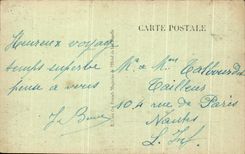 CARTE POSTALE
Heureux voyage
temps superbe
pense à vous
Mr & Mme Talbourdet
Tailleur
104 rue de Paris
Nantes
L. Inf.